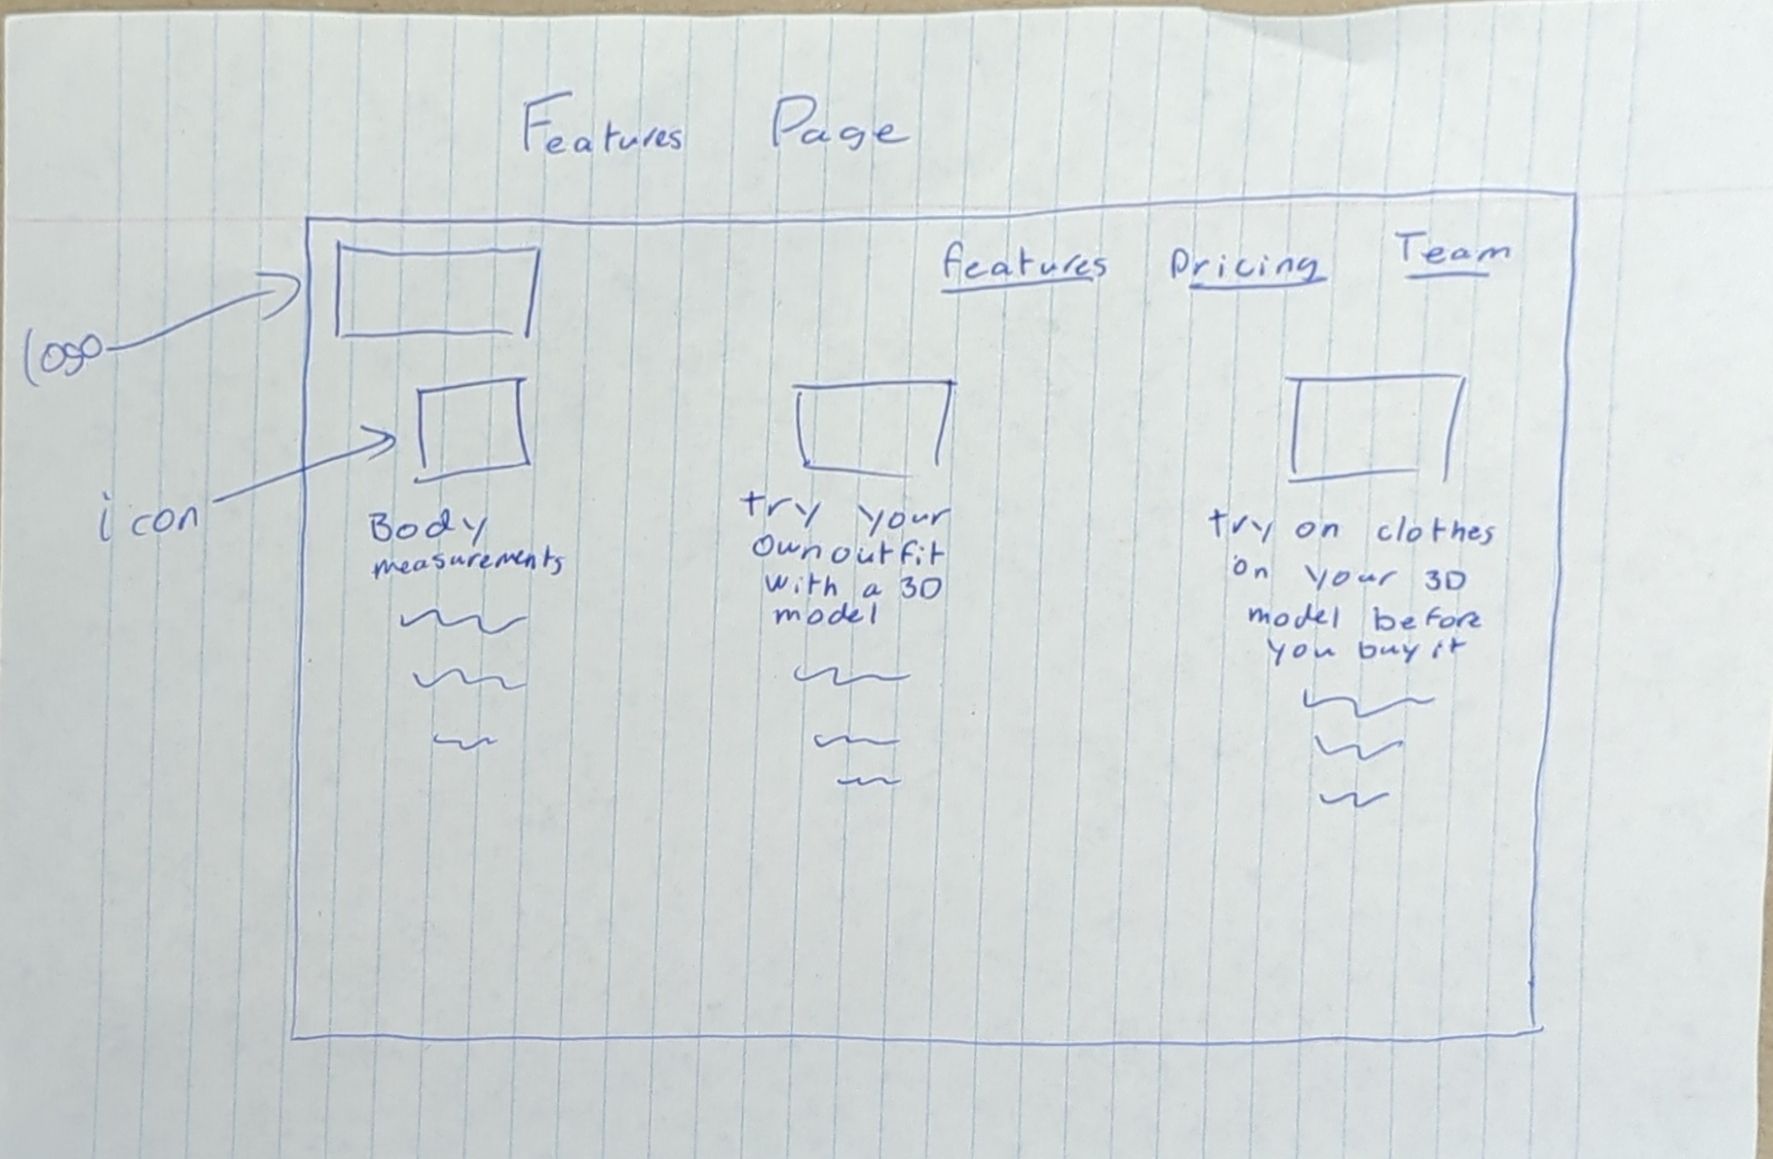 Features Page
features Pricing Team
logo
icon
Body
measurements
try your
own outfit
with a 3D
model
try on clothes
on your 3D
model before
you buy it